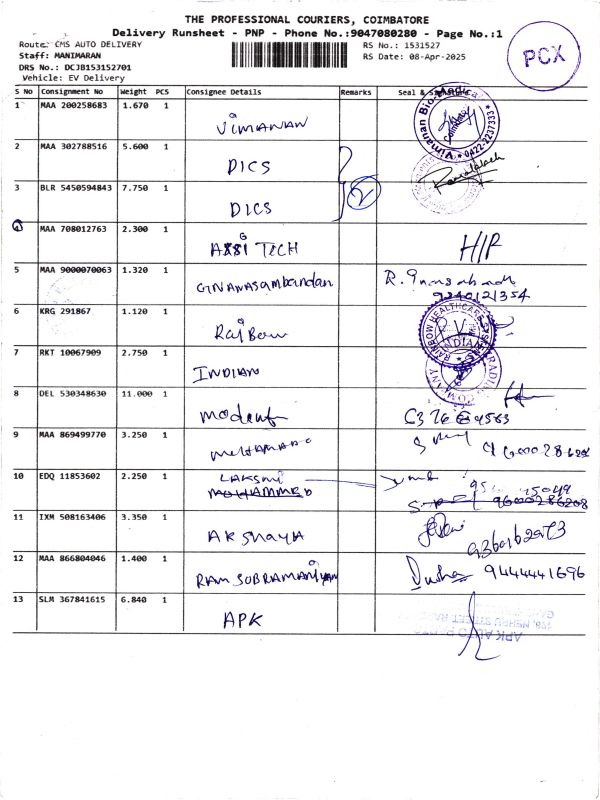 THE PROFESSIONAL COURIERS, COIMBATORE
Delivery Runsheet - PNP - Phone No.:9047080280 - Page No.:1
Route: CMS AUTO DELIVERY
Staff: MANIMARAN
DRS No.: DCJB153152701
Vehicle: EV Delivery
RS No.: 1531527
RS Date: 08-Apr-2025
PCX
S No Consignment No Weight PCS Consignee Details Remarks Seal &
1 MAA 200258683 1.670 1 VIMANAN Vimanan Bio-Medical Coimbatore 0422-2237333
2 MAA 302788516 5.600 1 DICS
3 BLR 5450594843 7.750 1 DICS
4 MAA 708012763 2.300 1 TECH H/P
5 MAA 9000070063 1.320 1 GNANASambandan R.
6 KRG 291867 1.120 1 RaiBow RAINBOW HEALTHCARE
7 RKT 10067909 2.750 1 INDIAN INDIAN TRADING COMPANY
8 DEL 530348630 11.000 1
9 MAA 869499770 3.250 1 MUHAMADD
10 EDQ 11853602 2.250 1 LAKSMI
MOHAMMED 9600286208
11 IXM 508163406 3.350 1 AKSHAYA
12 MAA 866804046 1.400 1 RAM SUBRAMANIYAN 9444441696
13 SLM 367841615 6.840 1 APK APK AUTO